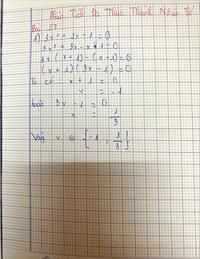 Phân Tích Đa Thức Thành Nhân Tử
Bài 27:
1) 3x² + 2x - 1 = 0
3x² + 3x - x - 1 = 0
3x (x + 1) - (x + 1) = 0
(x + 1) (3x - 1) = 0
Ta có : x + 1 = 0
x = -1
hoặc 3x - 1 = 0
x = 1/3
Vậy x ∈ { -1 ; 1/3 }